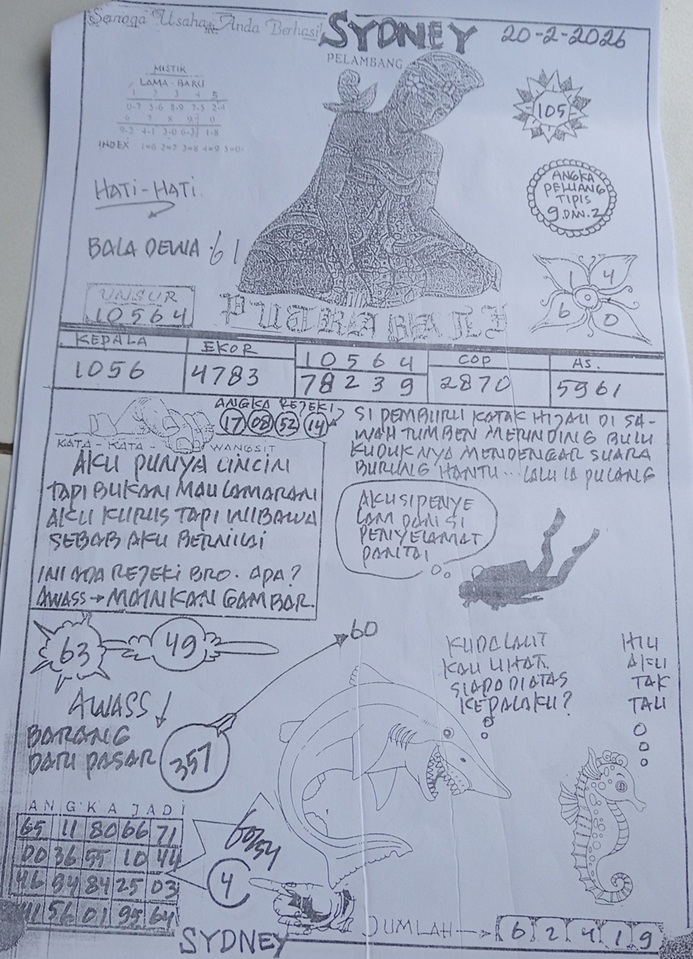 Semoga Usaha Anda Berhasil
SYDNEY
20-2-2026
PELAMBANG
MISTIK
LAMA-BARU
1 2 3 4 5
6 7 8 9 0
INDEX 1=6 2=7 3=8 4=9 5=0
105
HATI-HATI.
ANGKA
PELUANG
TIPIS
9 DAN 2
BALA DEWA : 61
1 4
6 0
UNSUR
10564
PUTRA BALI
KEPALA
1056
EKOR
4783
10564
78239
COP
2870
AS.
5961
ANGKA REJEKI
17 08 52 14
KATA-KATA-WANGSIT
AKU PUNYA CINCIN
TAPI BUKAN MAU LAMARAN
AKU KURUS TAPI WIBAWA
SEBAB AKU BERNILAI
INI ADA REJEKI BRO. APA?
AWASS → MAINKAN GAMBAR.
SI PEMBURU KATAK HIJAU DI SA-
WAH TUMBEN MERINDING BULU
KUDUK NYA MENDENGAR SUARA
BURUNG HANTU... LALU IA PULANG
AKU SI PENYE
LAM DAN SI
PENYELAMAT
PANTAI
63
49
60
AWASS
BARANG
DARI PASAR
357
KUDA LAUT
KAU LIHAT.
SIAPA DIATAS
KEPALAKU?
HIU
AKU
TAK
TAU
ANGKA JADI
65 11 80 66 71
00 36 55 10 44
46 94 84 25 03
41 56 01 95 64
60/54
4
SYDNEY
JUMLAH → 6 2 4 1 9